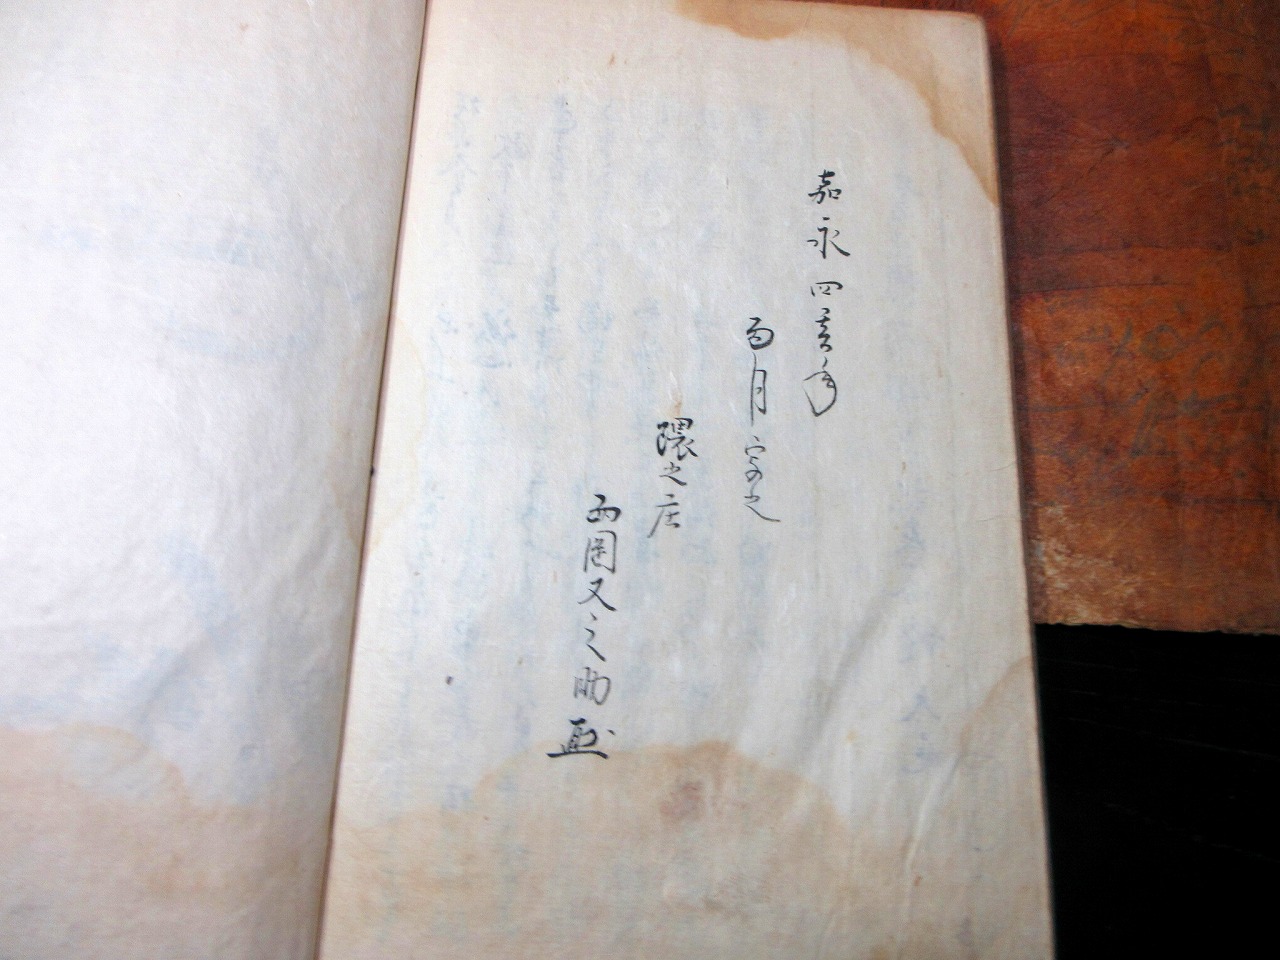 嘉永四亥年
西月写之
隈之庄
西岡又之助